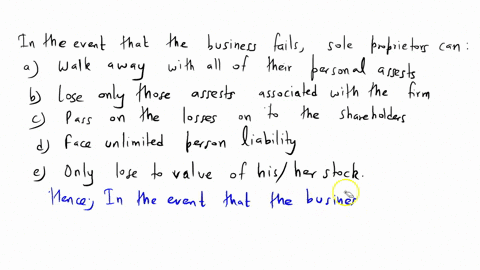 In the event that the business fails, sole proprietors can:
a) Walk away with all of their personal assests
b) Lose only those assests associated with the firm
c) Pass on the losses on to the shareholders
d) Face unlimited person liability
e) Only lose to value of his/her stock.
Hence; In the event that the busines